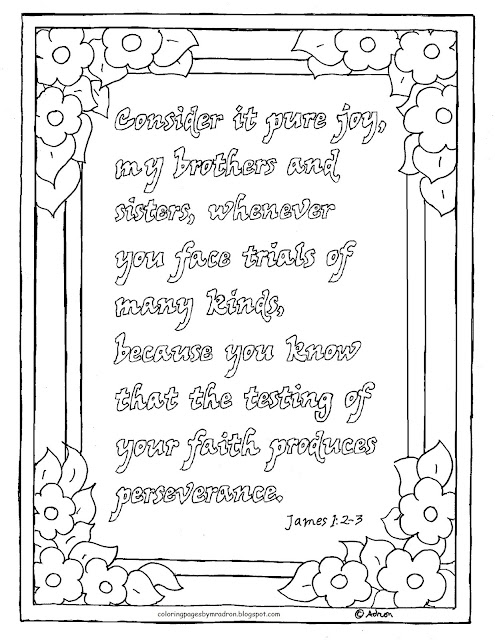 Consider it pure joy,
my brothers and
sisters, whenever
you face trials of
many kinds,
because you know
that the testing of
your faith produces
perseverance.
James 1:2-3
coloringpagesbymradron.blogspot.com
© Adron